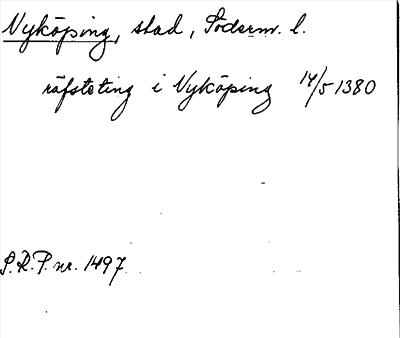 Nyköping, stad, Söderm. l.
räfsteting i Nyköping 14/5 1380
S.R.P. nr. 1497